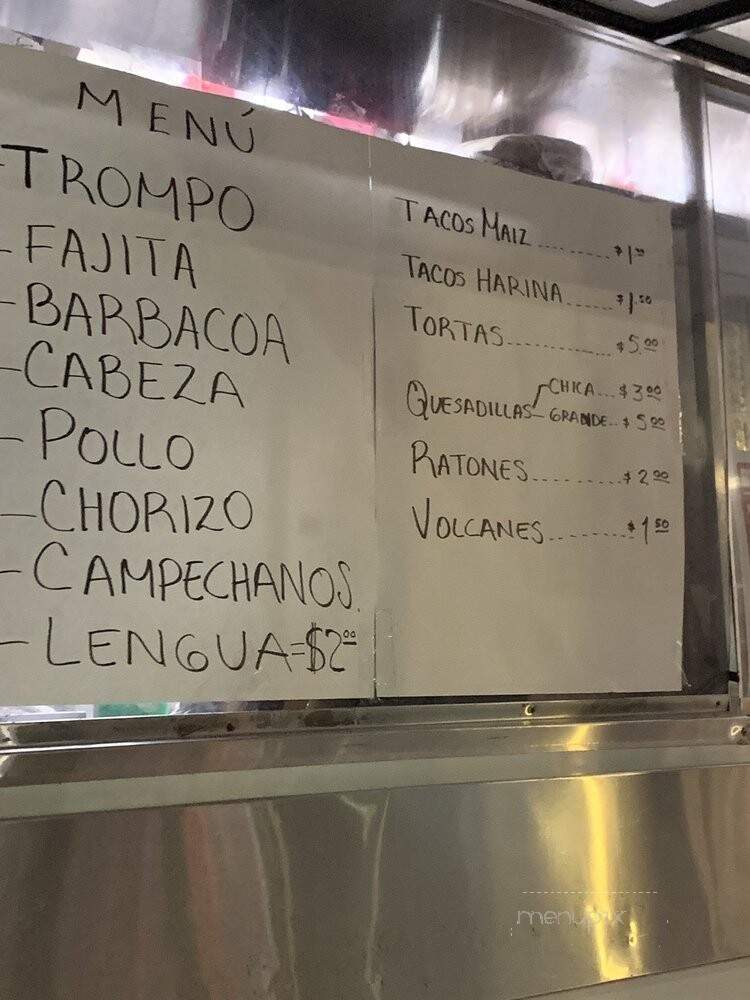 MENÚ
-TROMPO
-FAJITA
-BARBACOA
-CABEZA
-POLLO
-CHORIZO
-CAMPECHANOS.
-LENGUA=$2.00
TACOS MAIZ.........$1.00
TACOS HARINA......$1.50
TORTAS..............$5.00
QUESADILLAS
CHICA...$3.00
GRANDE..$5.00
RATONES...........$2.00
VOLCANES.........$1.50
menupix